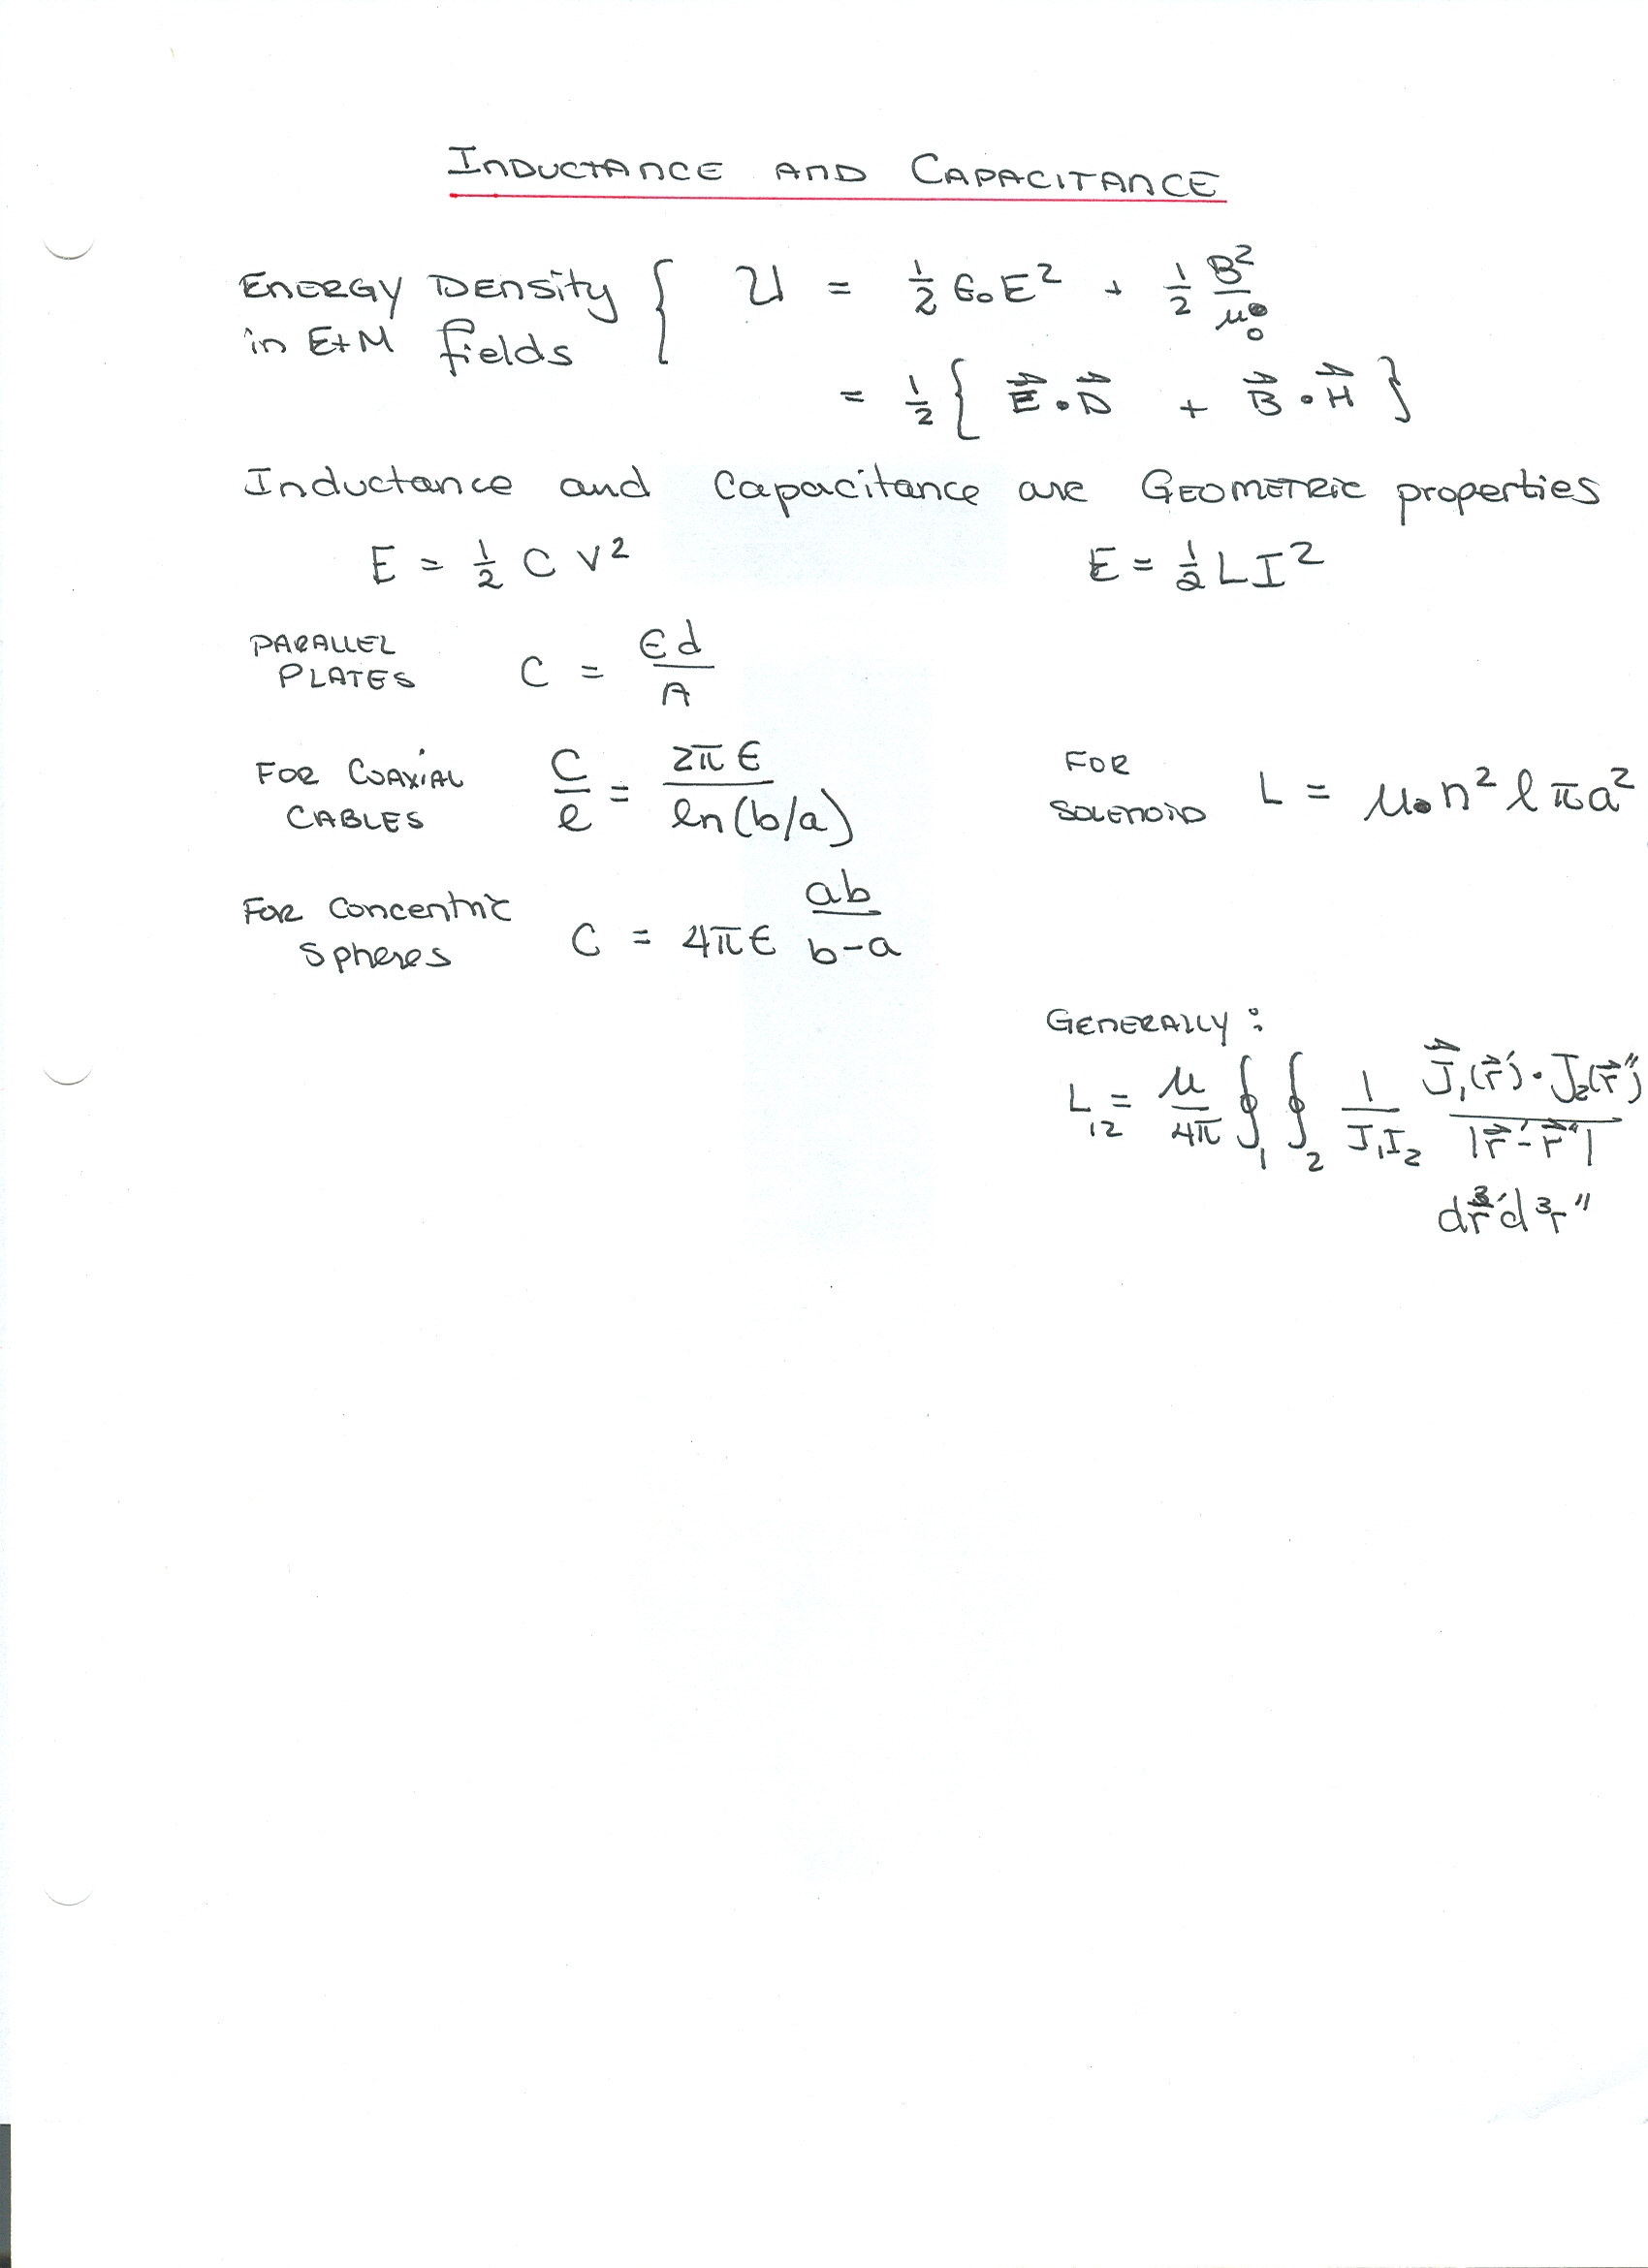 INDUCTANCE AND CAPACITANCE
ENERGY DENSITY in E+M fields { U = ½ ε₀E² + ½ B²/μ₀
= ½ { E⃗·D⃗ + B⃗·H⃗ }
Inductance and Capacitance are GEOMETRIC properties
E = ½ C V²
E = ½ L I²
PARALLEL PLATES C = ϵd/A
FOR COAXIAL CABLES C/ℓ = 2πϵ/ln(b/a)
FOR SOLENOID L = μ₀n²ℓπa²
For Concentric Spheres C = 4πϵ ab/b-a
GENERALLY:
L₁₂ = μ/4π ∮₁ ∮₂ 1/I₁I₂ J⃗₁(r⃗′)·J₂(r⃗″)/|r⃗′-r⃗″|
d³r′d³r″